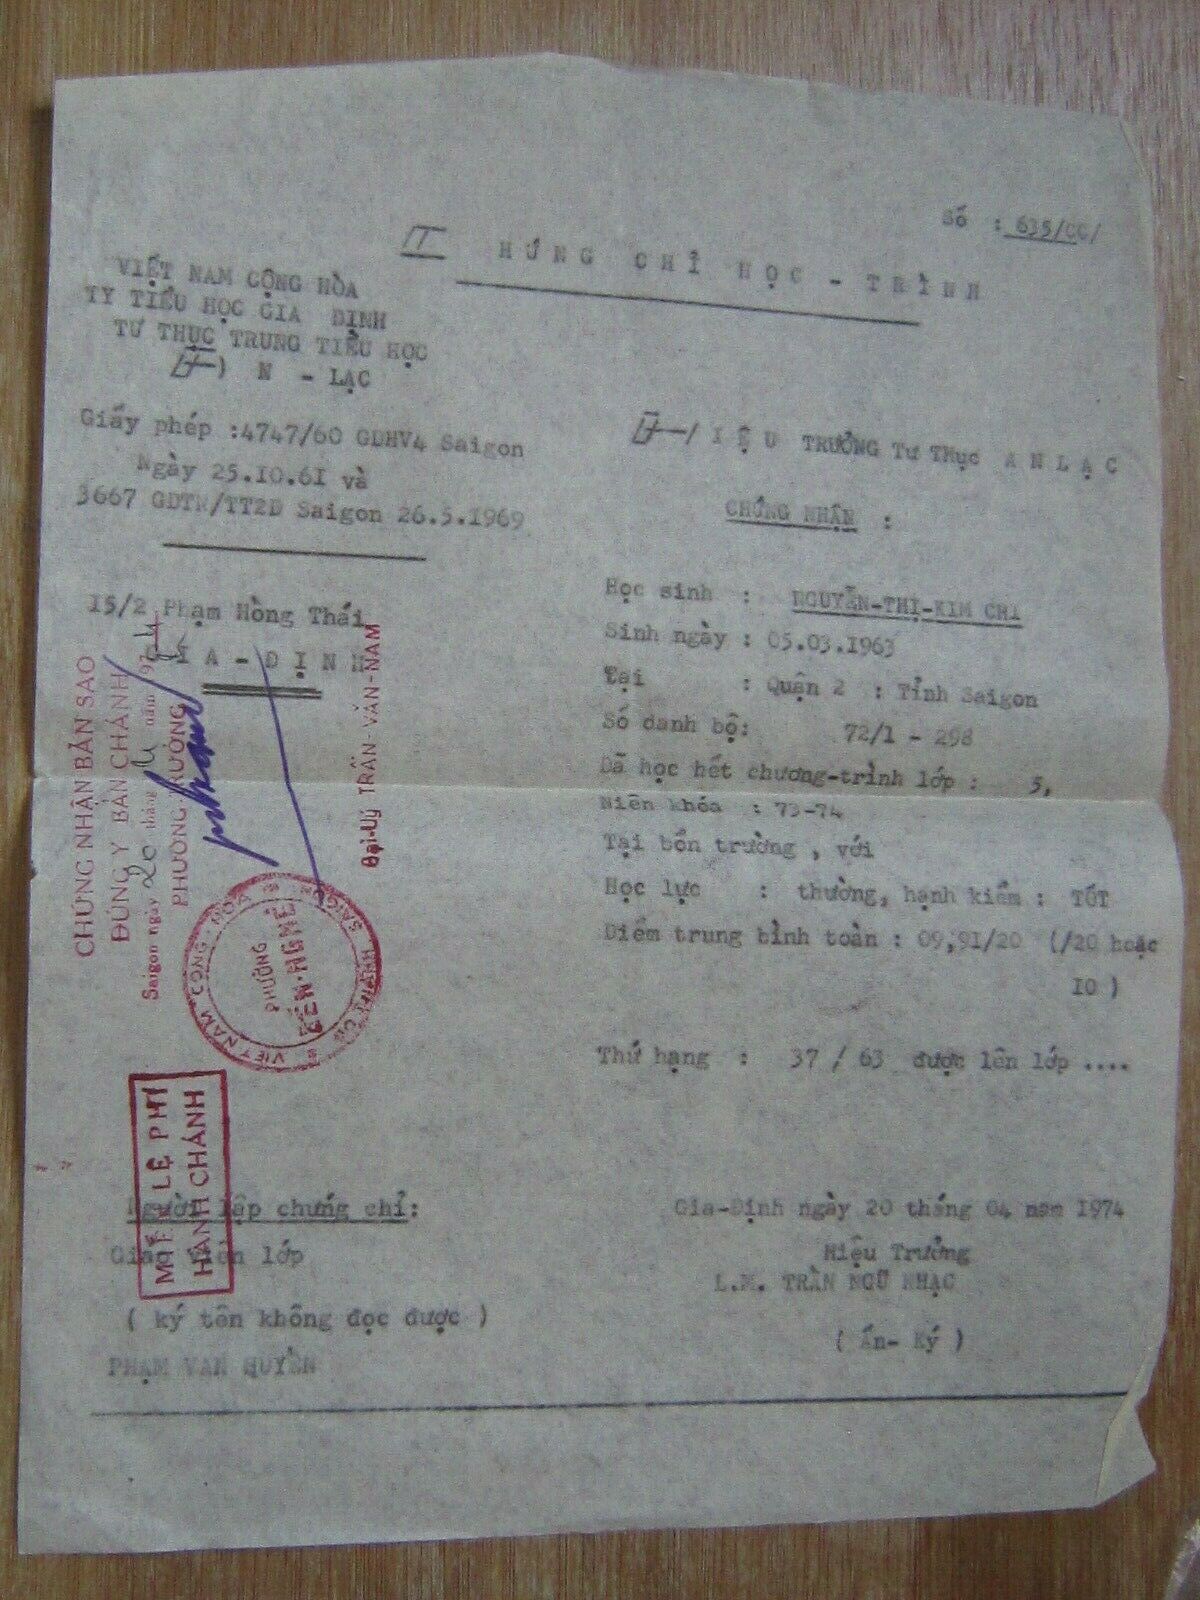 Số : 635/CC/
HỨNG CHỈ HỌC - TRÌNH
VIỆT NAM CỘNG HÒA
TY TIỂU HỌC GIA ĐỊNH
TƯ THỤC TRUNG TIỂU HỌC
N - LẠC
Giấy phép :4747/60 GDHV4 Saigon
Ngày 25.I0.6I và
3667 GDTN/TT2D Saigon 26.5.1969
I5/2 Phạm Hồng Thái
IA - ĐỊNH
IỆU TRƯỞNG TƯ THỤC AN LẠC
CHỨNG NHẬN :
Học sinh : NGUYỄN-THỊ-KIM CHI
Sinh ngày : 05.03.1963
Tại : Quận 2 : Tỉnh Saigon
Số danh bộ: 72/1 - 298
Đã học hết chương-trình lớp : 5,
Niên khóa : 73-74
Tại bổn trường , với
Học lực : thường, hạnh kiểm : TỐT
Điểm trung bình toàn : 09,91/20 (/20 hoặc
I0 )
Thứ hạng : 37 / 63 được lên lớp ....
Gia-Định ngày 20 tháng 04 năm 1974
Hiệu Trưởng
L.M. TRẦN NGŨ NHẠC
( Ấn- Ký )
Người lập chứng chỉ:
Giáo viên lớp
( ký tên không đọc được )
PHẠM VAN HUYỀN
CHỨNG NHẬN BẢN SAO
ĐÚNG Y BẢN CHÁNH
Saigon ngày 20 tháng 4 năm 974
PHƯỜNG TRƯỞNG
Đại-Uý TRẦN-VĂN-NAM
VIỆT NAM CỘNG HÒA
PHƯỜNG
BẾN-NGHÉ
MIỄN LỆ PHÍ
HÀNH CHÁNH